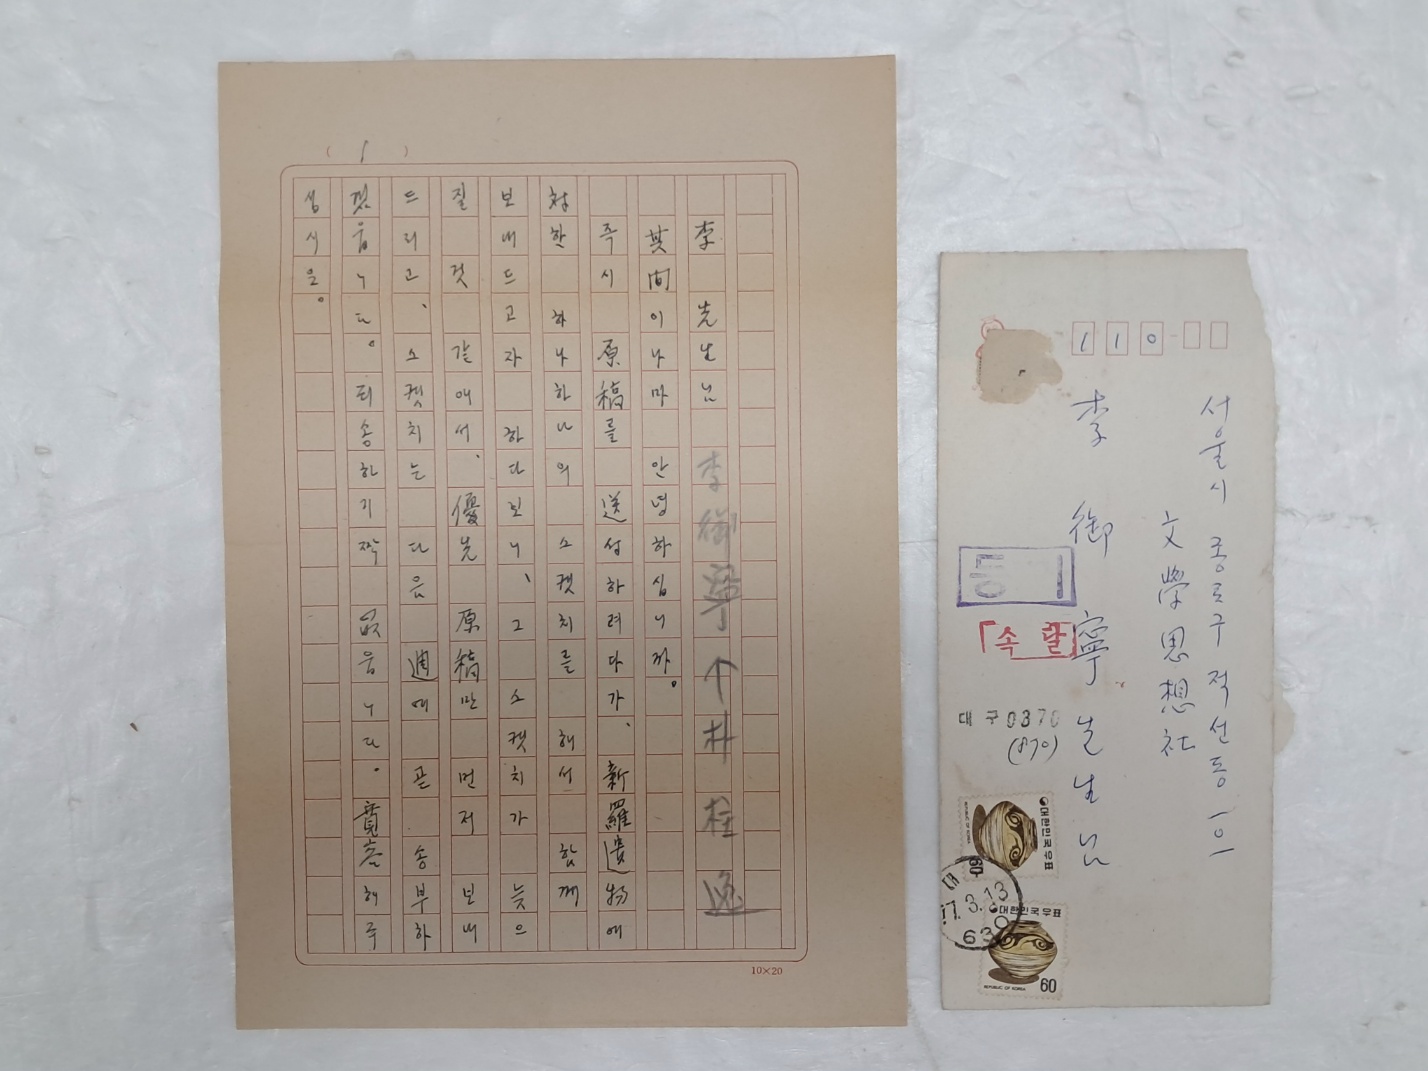 ( 1 )
李 先生님
李御寧 ↑ 朴桂逸
其間이나마 안녕하십니까。
즉시 原稿를 送성하려다가、 新羅遺物에
対한 하나하나의 스켓치를 해서 함께
보내드고자 하다보니、 그 스켓치가 늦으
질 것 같애서、 優先 原稿만 먼저 보내
드리고、 스켓치는 다음 週에 곧 송부하
겠읍니다。 퇴송하기 짝 없읍니다. 寬容해주
십시요。
10×20
110-
서울시 종로구 적선동 101
文學思想社
李御寧 先生님
등기
「속달
대구 0370
(870)
대한민국우표
REPUBLIC OF KOREA
60
대
77.3.13
630
대한민국우표
REPUBLIC OF KOREA
60